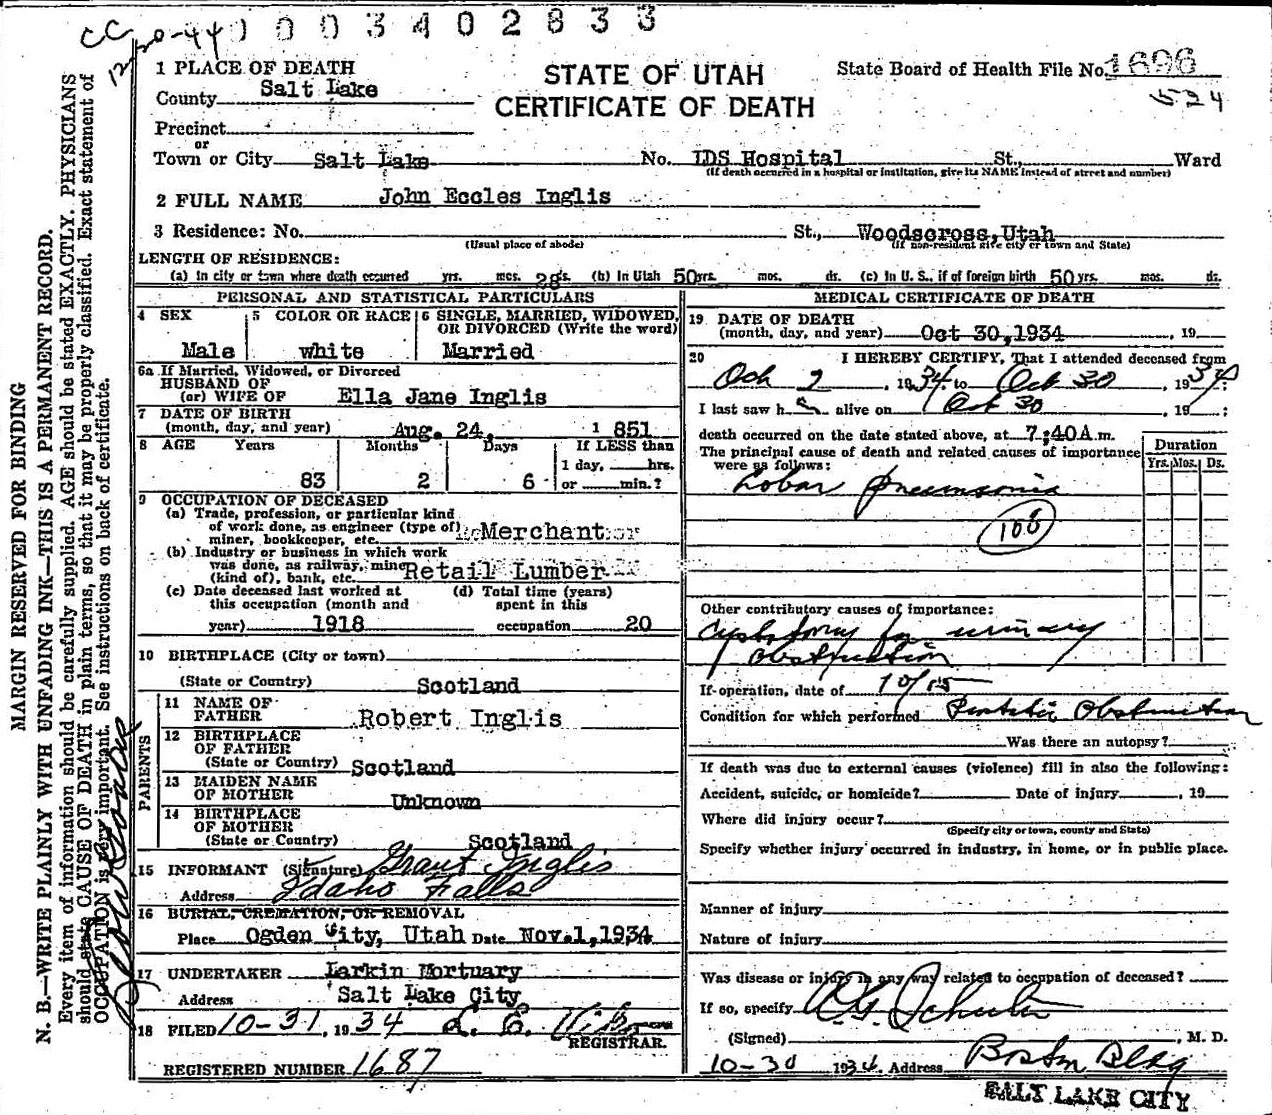 CC 1003402833
12-20-44
1 PLACE OF DEATH
County Salt Lake
STATE OF UTAH
CERTIFICATE OF DEATH
State Board of Health File No. 1696
524
Precinct
or
Town or City Salt Lake No. LDS Hospital St., Ward
(If death occurred in a hospital or institution, give its NAME instead of street and number)
2 FULL NAME John Eccles Inglis
3 Residence: No. St., Woodscross, Utah
(Usual place of abode) (If non-resident give city or town and State)
LENGTH OF RESIDENCE:
(a) In city or town where death occurred yrs. mos. 28 ds. (b) In Utah 50 yrs. mos. ds. (c) In U. S., if of foreign birth 50 yrs. mos. ds.
PERSONAL AND STATISTICAL PARTICULARS
4 SEX Male
5 COLOR OR RACE white
6 SINGLE, MARRIED, WIDOWED,
OR DIVORCED (Write the word)
Married
6a If Married, Widowed, or Divorced
HUSBAND OF
(or) WIFE OF Ella Jane Inglis
7 DATE OF BIRTH
(month, day, and year) Aug. 24, 1851
8 AGE Years Months Days If LESS than
1 day, hrs.
83 2 6 or min.?
9 OCCUPATION OF DECEASED
(a) Trade, profession, or particular kind
of work done, as engineer (type of)
miner, bookkeeper, etc. Merchant
(b) Industry or business in which work
was done, as railway, mine
(kind of), bank, etc. Retail Lumber
(c) Date deceased last worked at
this occupation (month and
year) 1918
(d) Total time (years)
spent in this
occupation 20
10 BIRTHPLACE (City or town)
(State or Country) Scotland
PARENTS
11 NAME OF
FATHER Robert Inglis
12 BIRTHPLACE
OF FATHER
(State or Country) Scotland
13 MAIDEN NAME
OF MOTHER Unknown
14 BIRTHPLACE
OF MOTHER
(State or Country) Scotland
15 INFORMANT (Signature) Grant Inglis
Address Idaho Falls
16 BURIAL, CREMATION, OR REMOVAL
Place Ogden City, Utah Date Nov. 1, 1934
17 UNDERTAKER Larkin Mortuary
Address Salt Lake City
18 FILED 10-31, 1934
REGISTRAR.
REGISTERED NUMBER 1687
MEDICAL CERTIFICATE OF DEATH
19 DATE OF DEATH
(month, day, and year) Oct 30, 1934, 19
20 I HEREBY CERTIFY, That I attended deceased from
Oct 2, 1934 to Oct 30, 1934;
I last saw h alive on Oct 30, 19 ;
death occurred on the date stated above, at 7:40A m.
The principal cause of death and related causes of importance
were as follows:
Duration
Yrs. Mos. Ds.
Lobar Pneumonia
108
Other contributory causes of importance:
Cystotomy for urinary
obstruction
If operation, date of 10/15
Condition for which performed Prostatic Obstruction
Was there an autopsy?
If death was due to external causes (violence) fill in also the following:
Accident, suicide, or homicide? Date of injury , 19
Where did injury occur?
(Specify city or town, county and State)
Specify whether injury occurred in industry, in home, or in public place.
Manner of injury
Nature of injury
Was disease or injury in any way related to occupation of deceased?
If so, specify
(Signed) , M. D.
10-30 1934 Address Boston Bldg
SALT LAKE CITY
MARGIN RESERVED FOR BINDING
N. B.—WRITE PLAINLY WITH UNFADING INK—THIS IS A PERMANENT RECORD.
Every item of information should be carefully supplied. AGE should be stated EXACTLY. PHYSICIANS
should state CAUSE OF DEATH in plain terms, so that it may be properly classified. Exact statement of
OCCUPATION is very important. See instructions on back of certificate.